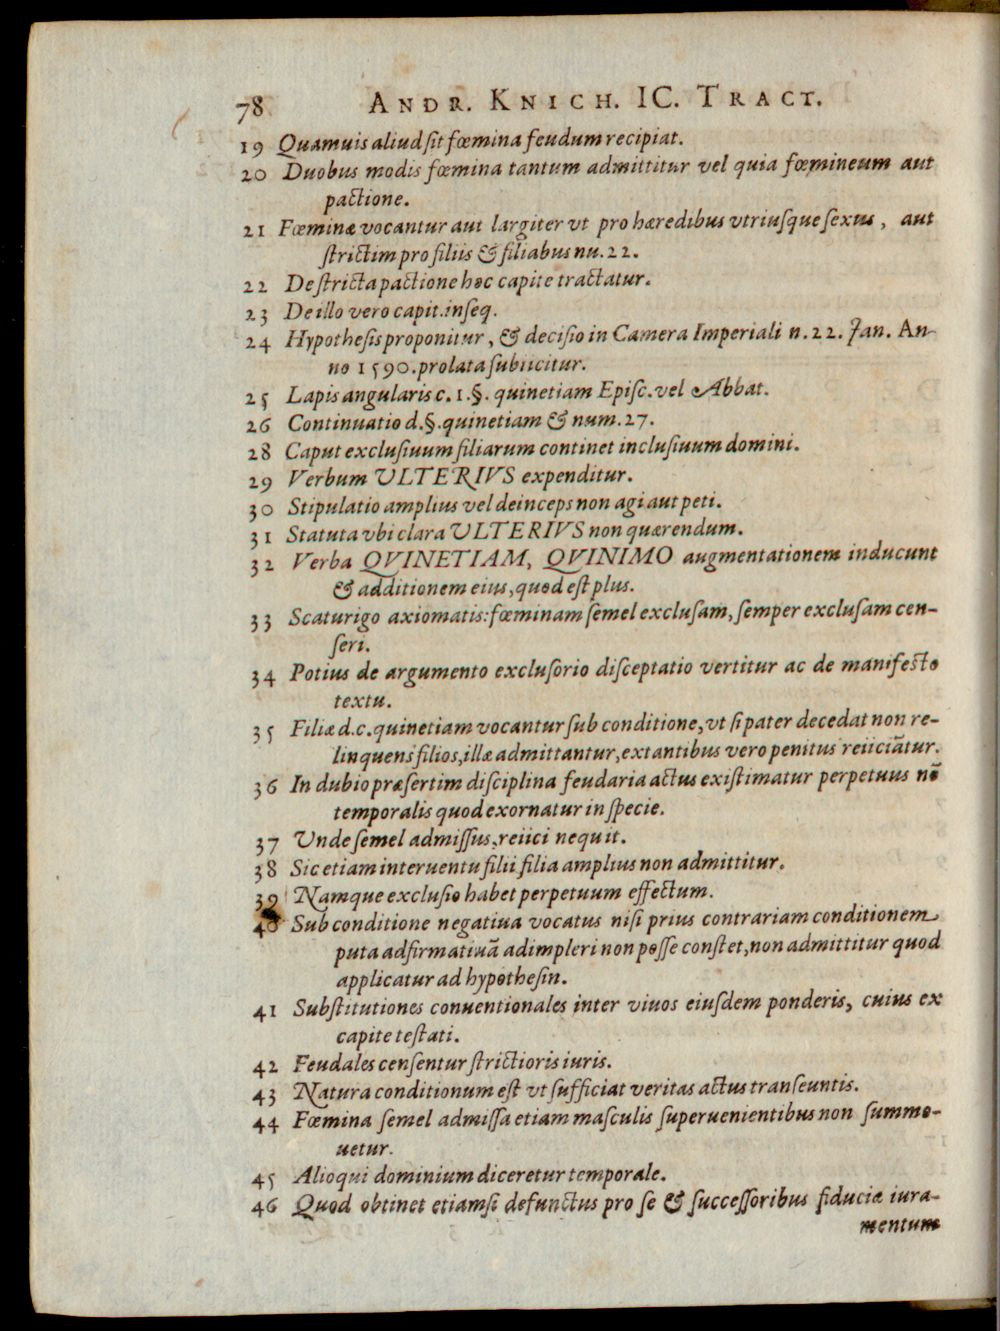 78 ANDR. KNICH. IC. TRACT.
19 Quamuis aliud sit fœmina feudum recipiat.
20 Duobus modis fœmina tantum admittitur vel quia fœmineum aut
pactione.
21 Fœminæ vocantur aut largiter vt pro hæredibus vtriusque sexus, aut
strictim pro filiis & filiabus nu. 22.
22 De stricta pactione hoc capite tractatur.
23 De illo vero capit. inseq.
24 Hypothesis proponitur, & decisio in Camera Imperiali n. 22. Jan. An-
no 1590. prolata subiicitur.
25 Lapis angularis c. 1. §. quinetiam Episc. vel Abbat.
26 Continuatio d. §. quinetiam & num. 27.
28 Caput exclusiuum filiarum continet inclusiuum domini.
29 Verbum ULTERIVS expenditur.
30 Stipulatio amplius vel deinceps non agi aut peti.
31 Statuta vbi clara ULTERIVS non quærendum.
32 Verba QVINETIAM, QVINIMO augmentationem inducunt
& additionem eius, quod est plus.
33 Scaturigo axiomatis: fœminam semel exclusam, semper exclusam cen-
seri.
34 Potius de argumento exclusorio disceptatio vertitur ac de manifesto
textu.
35 Filiæ d. c. quinetiam vocantur sub conditione, vt si pater decedat non re-
linquens filios, illæ admittantur, extantibus vero penitus reiiciãtur.
36 In dubio præsertim disciplina feudaria actus existimatur perpetuus nõ
temporalis quod exornatur in specie.
37 Unde semel admissus, reiici nequit.
38 Sic etiam interuentu filii filia amplius non admittitur.
39 Namque exclusio habet perpetuum effectum.
40 Sub conditione negatiua vocatus nisi prius contrariam conditionem
puta adfirmatiuã adimpleri non posse constet, non admittitur quod
applicatur ad hypothesin.
41 Substitutiones conuentionales inter viuos eiusdem ponderis, cuius ex
capite testati.
42 Feudales censentur strictioris iuris.
43 Natura conditionum est vt sufficiat veritas actus transeuntis.
44 Fœmina semel admissa etiam masculis superuenientibus non summo-
uetur.
45 Alioqui dominium diceretur temporale.
46 Quod obtinet etiamsi defunctus pro se & successoribus fiduciæ iura-
mentum